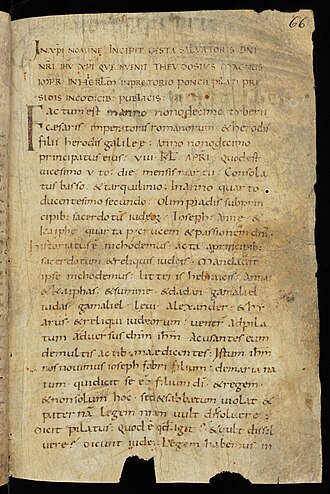 66
IN XPI NOMINE INCIPIT GESTA SALVATORIS DNI
NRI IHU XPI QUE INVENIT THEUDOSIUS MAGNUS
IMPR IN HIERLM IN PRETORIO PONCII PILATI PRE
SIDIS IN CODICIB PUBLICIS
Factum est in anno nonodecimo tyberii
cæsaris imperatoris romanorum & herodis
filii herodis galileæ. Anno nonodecimo
principatus eius. VIII. KL. APRI. Quod est
vicesimo v to die mensis martii. Consola
tus basso & tarquilino. In anno quarto
ducentesimo secundo. Olimpiadis sub prin
cipib; sacerdotu iudeor. Ioseph. Anne. &
Kaiphe. quarta p crucem & passionem dni
historiatus e nichodemus. acta a principib;
sacerdotum & reliquis iudeis. Mandavit
ipse nichodemus. litteris hebraicis. Annas
& kaiphas. & summe. & dadan. gamaliel
iudas. gamaliel. levi. alexander. & sy
arus. & reliqui iudeorum. vener ad pila
tum adversus dnm ihm. Accusantes eum
de multis actib; male dicentes. Istum ihm
nos novimus ioseph fabri filium. de maria na
tum. qui dicit se e filium di & regem.
& non solum hoc. sed & sabbatum violat &
pater na legem nram vult dissolvere.
Dicit pilatus. quod e qd. igit & vult dissol
vere. Dicunt iudei. Legem habemus in